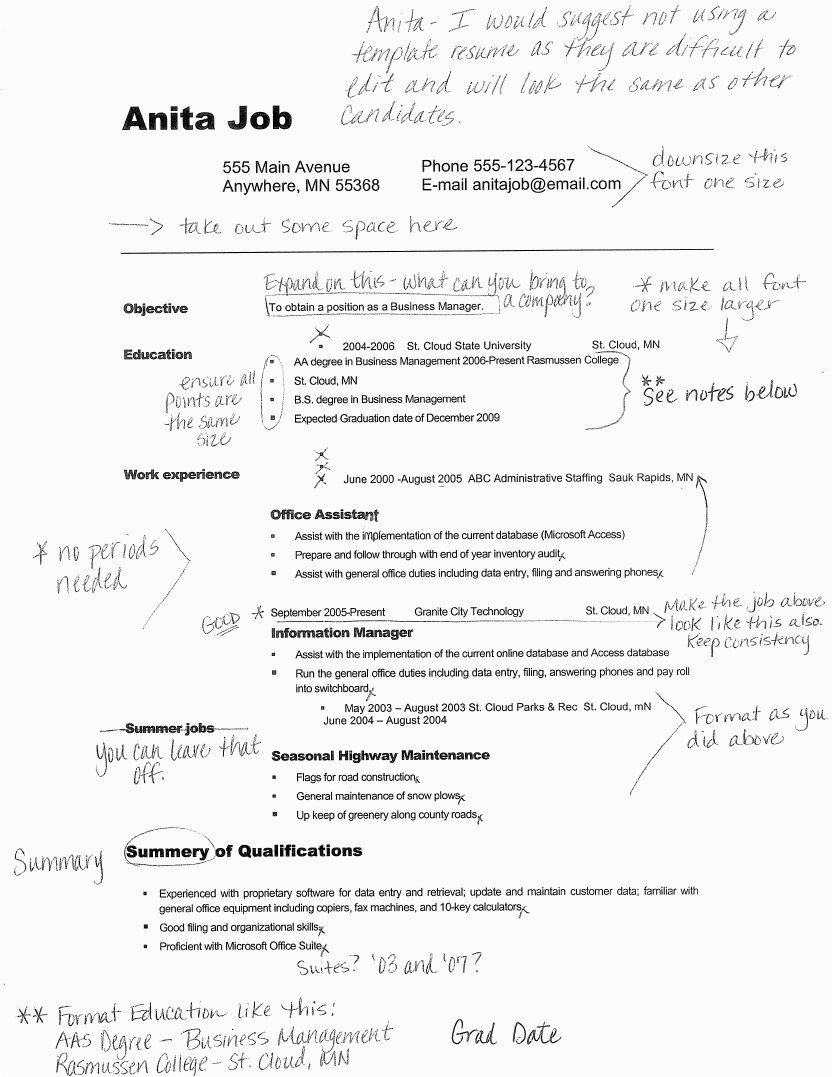 Anita - I would suggest not using a
template resume as they are difficult to
edit and will look the same as other
candidates.
Anita Job
555 Main Avenue Phone 555-123-4567
Anywhere, MN 55368 E-mail anitajob@email.com
downsize this
font one size
take out some space here
Expand on this - what can you bring to
a company?
* make all font
one size larger
Objective To obtain a position as a Business Manager.
Education
2004-2006 St. Cloud State University St. Cloud, MN
AA degree in Business Management 2006-Present Rasmussen College
St. Cloud, MN
B.S. degree in Business Management
Expected Graduation date of December 2009
ensure all
points are
the same
size
**
See notes below
Work experience
June 2000 -August 2005 ABC Administrative Staffing Sauk Rapids, MN
Office Assistant
Assist with the implementation of the current database (Microsoft Access)
Prepare and follow through with end of year inventory audit.
Assist with general office duties including data entry, filing and answering phones.
* no periods
needed
GOOD * September 2005-Present Granite City Technology St. Cloud, MN
Make the job above
look like this also.
Keep consistency
Information Manager
Assist with the implementation of the current online database and Access database
Run the general office duties including data entry, filing, answering phones and pay roll
into switchboard.
May 2003 – August 2003 St. Cloud Parks & Rec St. Cloud, mN
June 2004 – August 2004
Format as you
did above
Summer jobs
You can leave that
off.
Seasonal Highway Maintenance
Flags for road construction.
General maintenance of snow plows.
Up keep of greenery along county roads.
Summary
Summery of Qualifications
Experienced with proprietary software for data entry and retrieval; update and maintain customer data; familiar with
general office equipment including copiers, fax machines, and 10-key calculators.
Good filing and organizational skills.
Proficient with Microsoft Office Suite.
Suites? '03 and '07?
** Format Education like this:
AAS Degree - Business Management Grad Date
Rasmussen College - St. Cloud, MN